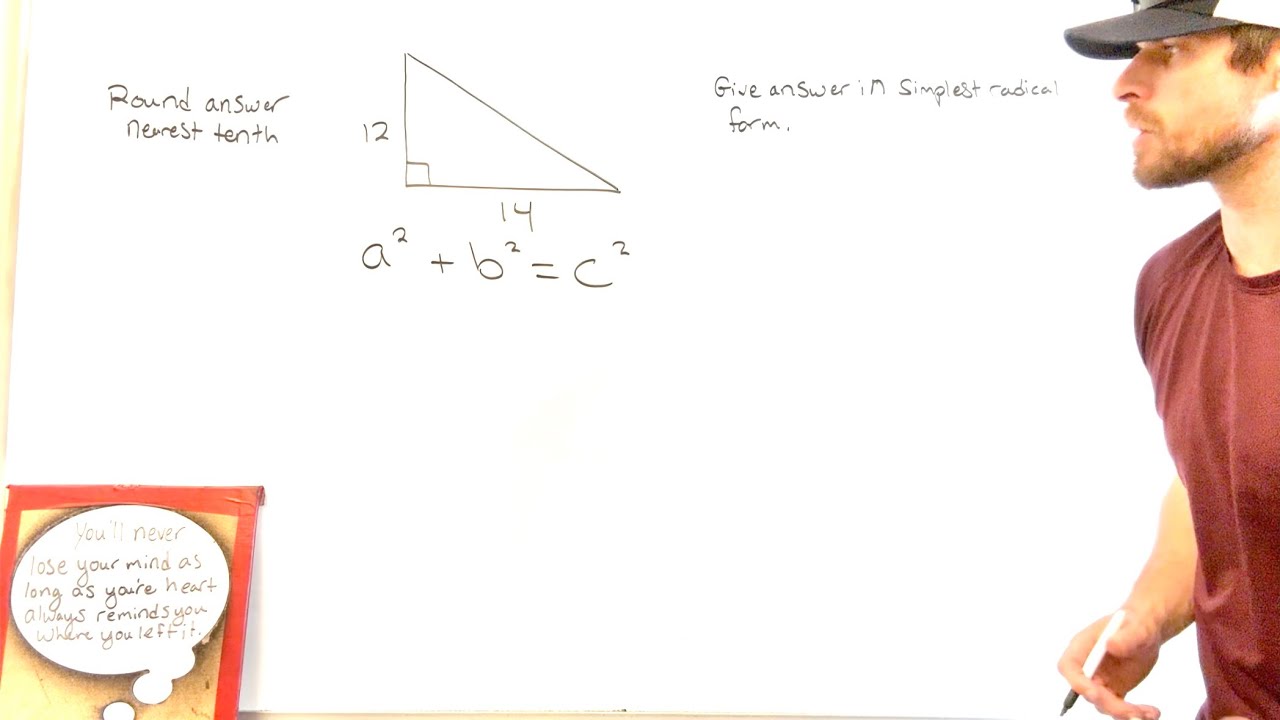 Round answer
nearest tenth
12
14
a² + b² = c²
Give answer in simplest radical
form.
You'll never
lose your mind as
long as you're heart
always reminds you
where you left it.